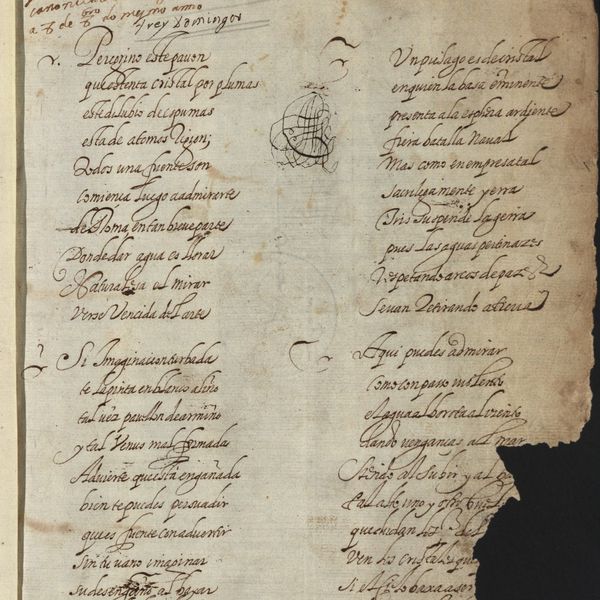 a 8 de 8bro do mesmo anno
frey Domingos
1. Peregrino este pauon
que ostenta cristal por plumas
este dilubio de espumas
esta de atomos Vnion;
Todos una fuente son
comiença luego a admirarte
de Roma en tan breue parte
Donde dar agua es llorar
Naturalesa el mirar
Verse Vencida del arte
2. Si Imaginacion turbada
te la pinta en blanco aliño
tal vez pauellon de armiño
y tal Venus mal formada
Aduierte que esta engañada
bien te puedes persuadir
que es fuente con aduertir
sin tu vano imaginar
su desengaño al baxar
Vn pielago es de cristal
en quien la basa eminente
presenta a la esphera ardiente
fiera batalla Naual
Mas como en empresa tal
sacrilegamente yerra
Iris suspende la gerra
pues las aguas pertinazes
respetando arcos de pazes
Se uan Retirando a tierra
Aqui puedes admirar
como con passo violento
el agua alborota al viento
dando venganças al mar
al subir y al
uno y otro
que
ven los cristales que
Si